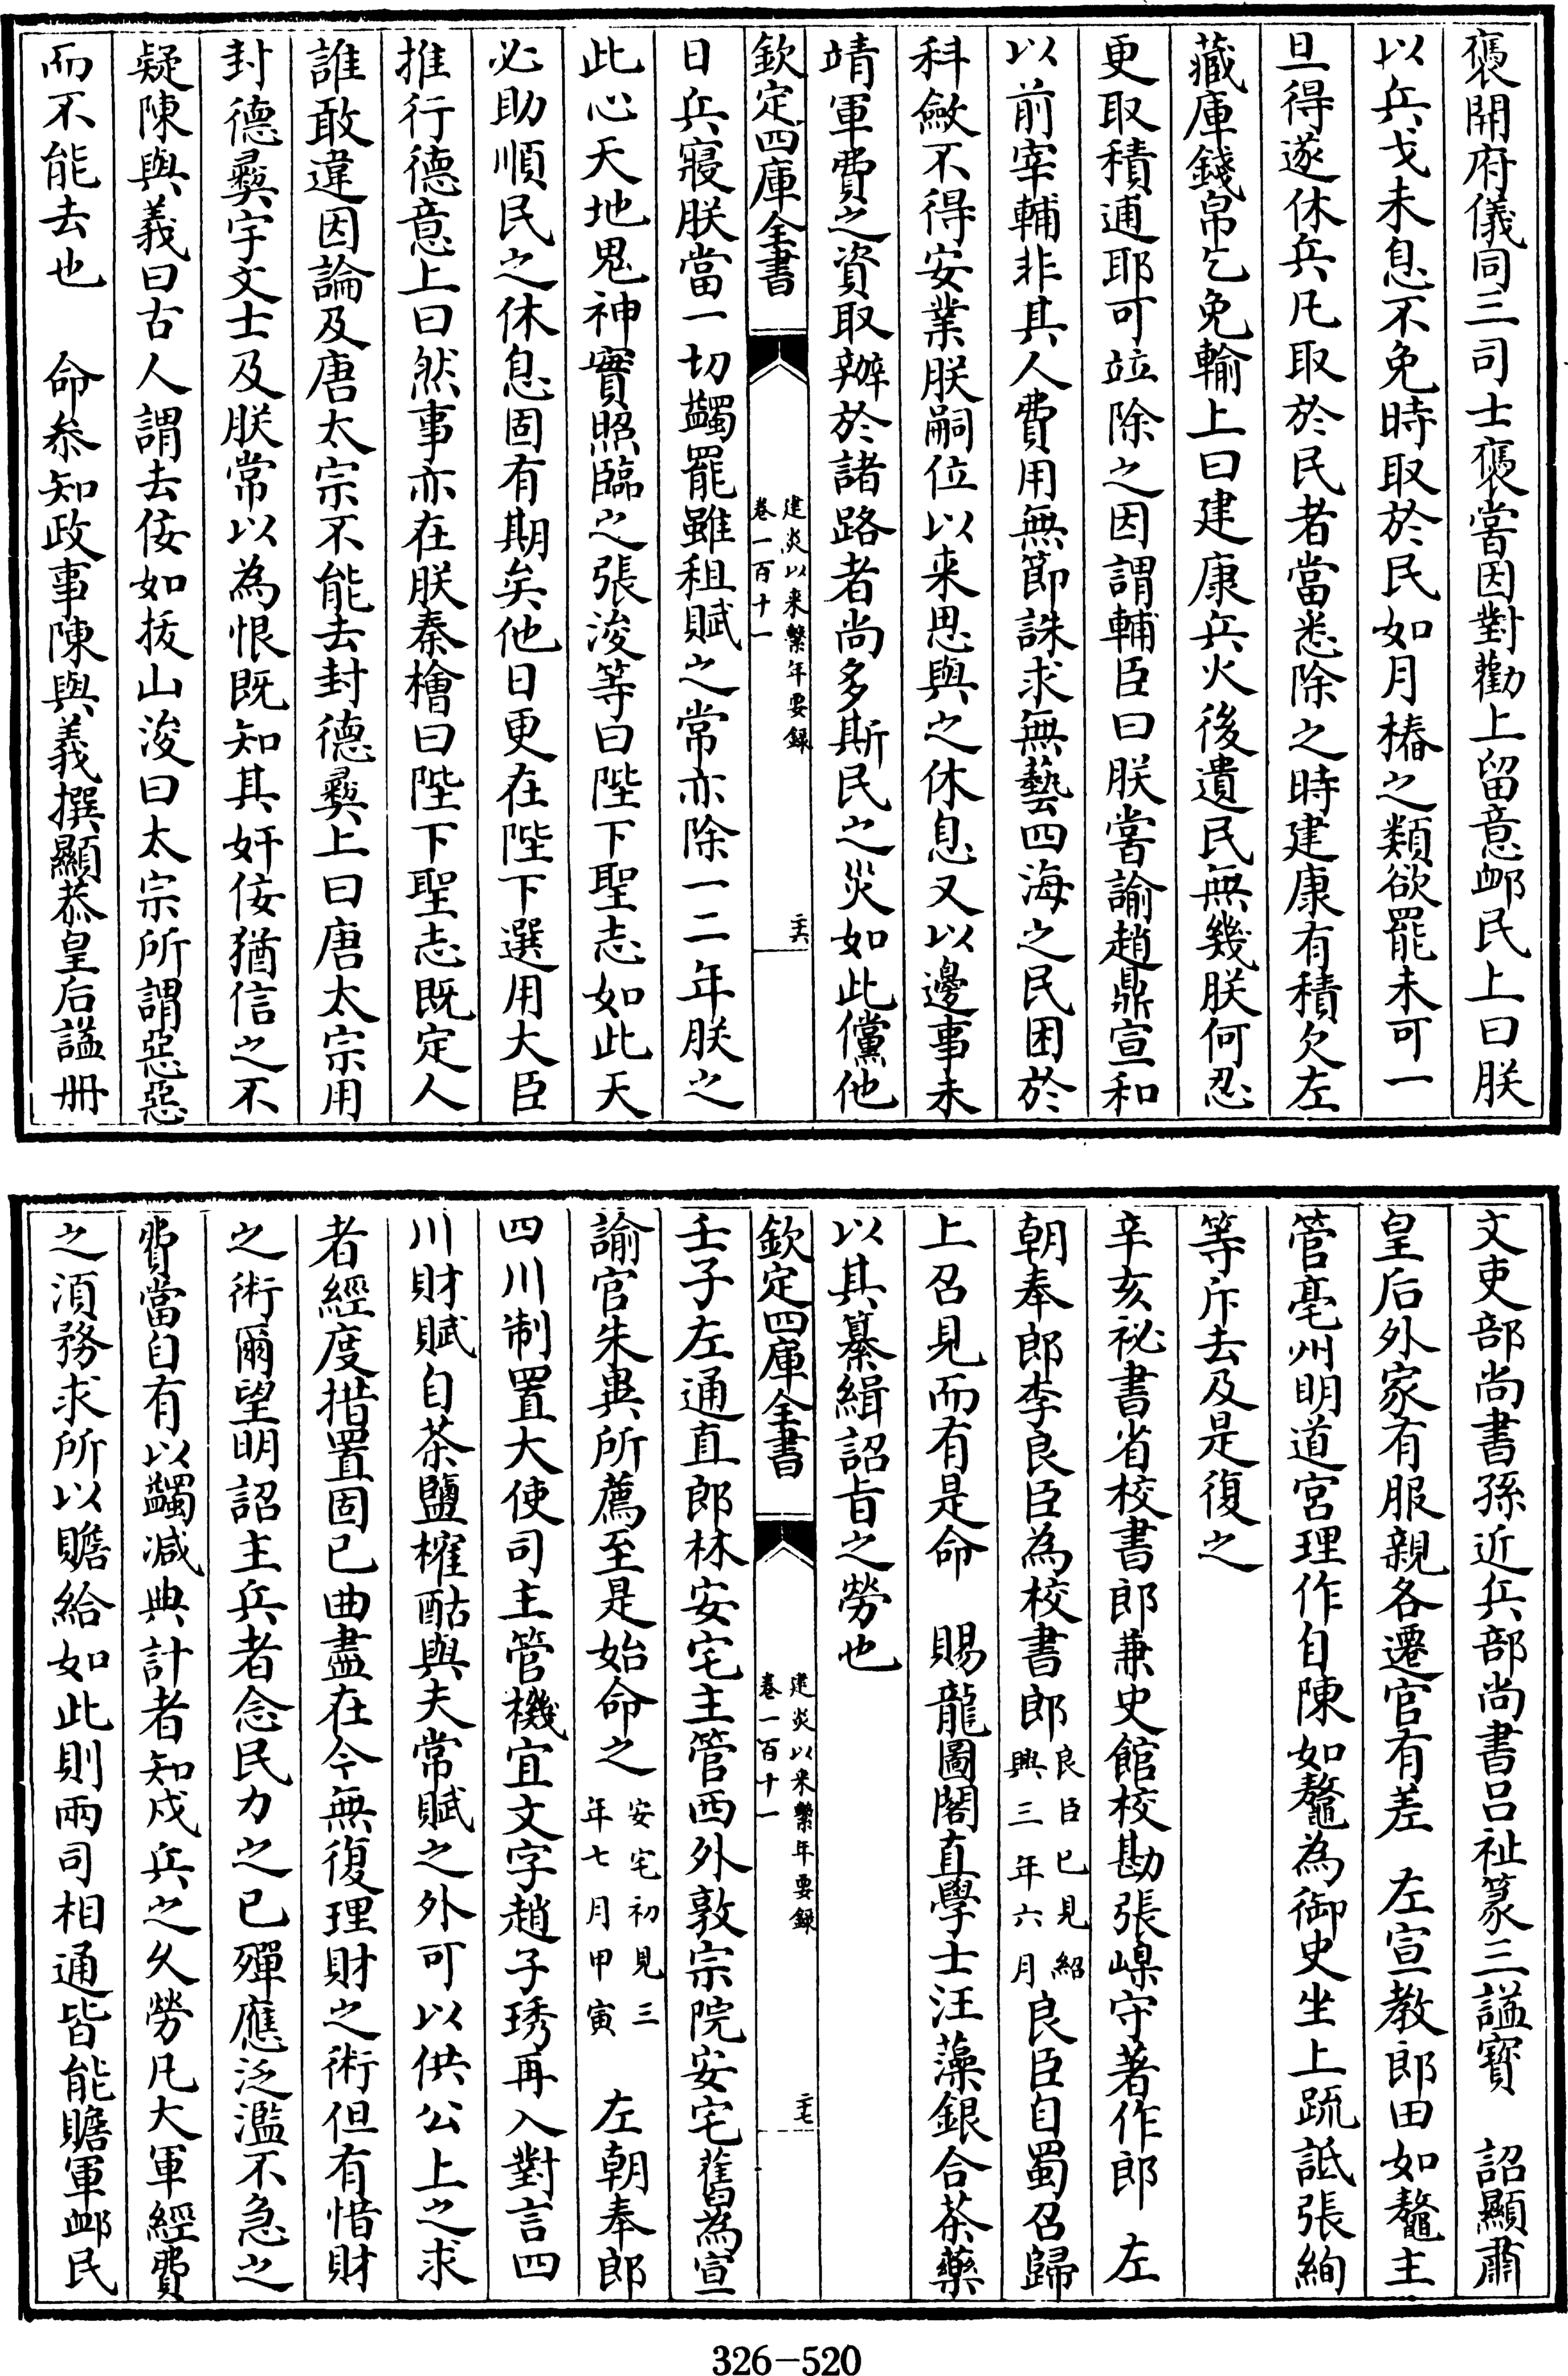 褒開府儀同三司士褒嘗因對勸上留意䘏民上曰朕
以兵戈未息不免時取於民如月樁之類欲罷未可一
旦得遂休兵凡取於民者當悉除之時建康有積欠左
藏庫錢帛乞免輸上曰建康兵火後遺民無幾朕何忍
更取積逋耶可竝除之因謂輔臣曰朕嘗諭趙鼎宣和
以前宰輔非其人費用無節誅求無藝四海之民困於
科斂不得安業朕嗣位以来思與之休息又以邊事未
靖軍費之資取辦於諸路者尚多斯民之災如此儻他
欽定四庫全書
建炎以来繫年要録
卷一百十一
主六
日兵寢朕當一切蠲罷雖租賦之常亦除一二年朕之
此心天地鬼神實照臨之張浚等曰陛下聖志如此天
必助順民之休息固有期矣他日更在陛下選用大臣
推行德意上曰然事亦在朕秦檜曰陛下聖志既定人
誰敢違因論及唐太宗不能去封德彞上曰唐太宗用
封德彞宇文士及朕常以為恨既知其奸佞猶信之不
疑陳與義曰古人謂去佞如拔山浚曰太宗所謂惡惡
而不能去也　命叅知政事陳與義撰顯恭皇后諡册
文吏部尚書孫近兵部尚書吕祉篆三諡寳　詔顯肅
皇后外家有服親各遷官有差　左宣教郎田如鼇主
管亳州明道宮理作自陳如鼇為御史坐上疏詆張絢
等斥去及是復之
辛亥祕書省校書郎兼史館校勘張嵲守著作郎　左
朝奉郎李良臣為校書郎良臣已見紹興三年六月良臣自蜀召歸
上召見而有是命　賜龍圖閣直學士汪藻銀合茶藥
以其纂緝詔旨之勞也
欽定四庫全書
建炎以来繫年要録
卷一百十一
主七
壬子左通直郎林安宅主管西外敦宗院安宅舊為宣
諭官朱異所薦至是始命之安宅初見三年七月甲寅　左朝奉郎
四川制置大使司主管機宜文字趙子琇再入對言四
川財賦自茶鹽榷酤與夫常賦之外可以供公上之求
者經度措置固已曲盡在今無復理財之術但有惜財
之術爾望明詔主兵者念民力之已殫應泛濫不急之
費當自有以蠲减典計者知戍兵之久勞凡大軍經費
之湏務求所以贍給如此則兩司相通皆能贍軍䘏民
326-520